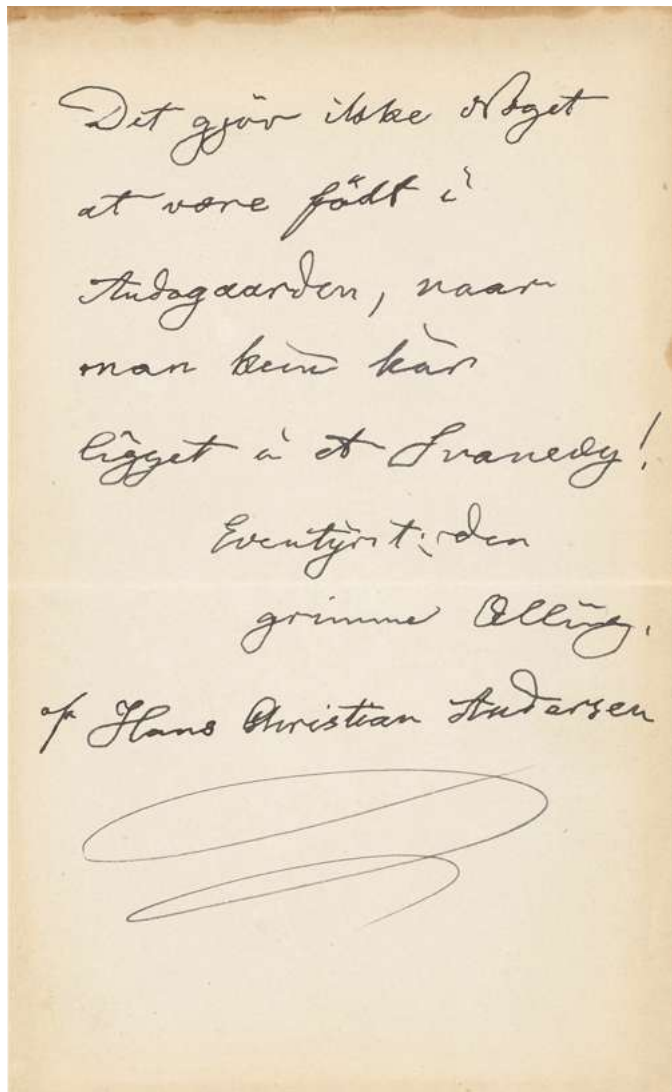 Det gjör ikke Noget
at være födt i
Andegaarden, naar
man kun har
ligget i et Svaneæg!
Eventyret: den
grimme Ælling.
af Hans Christian Andersen